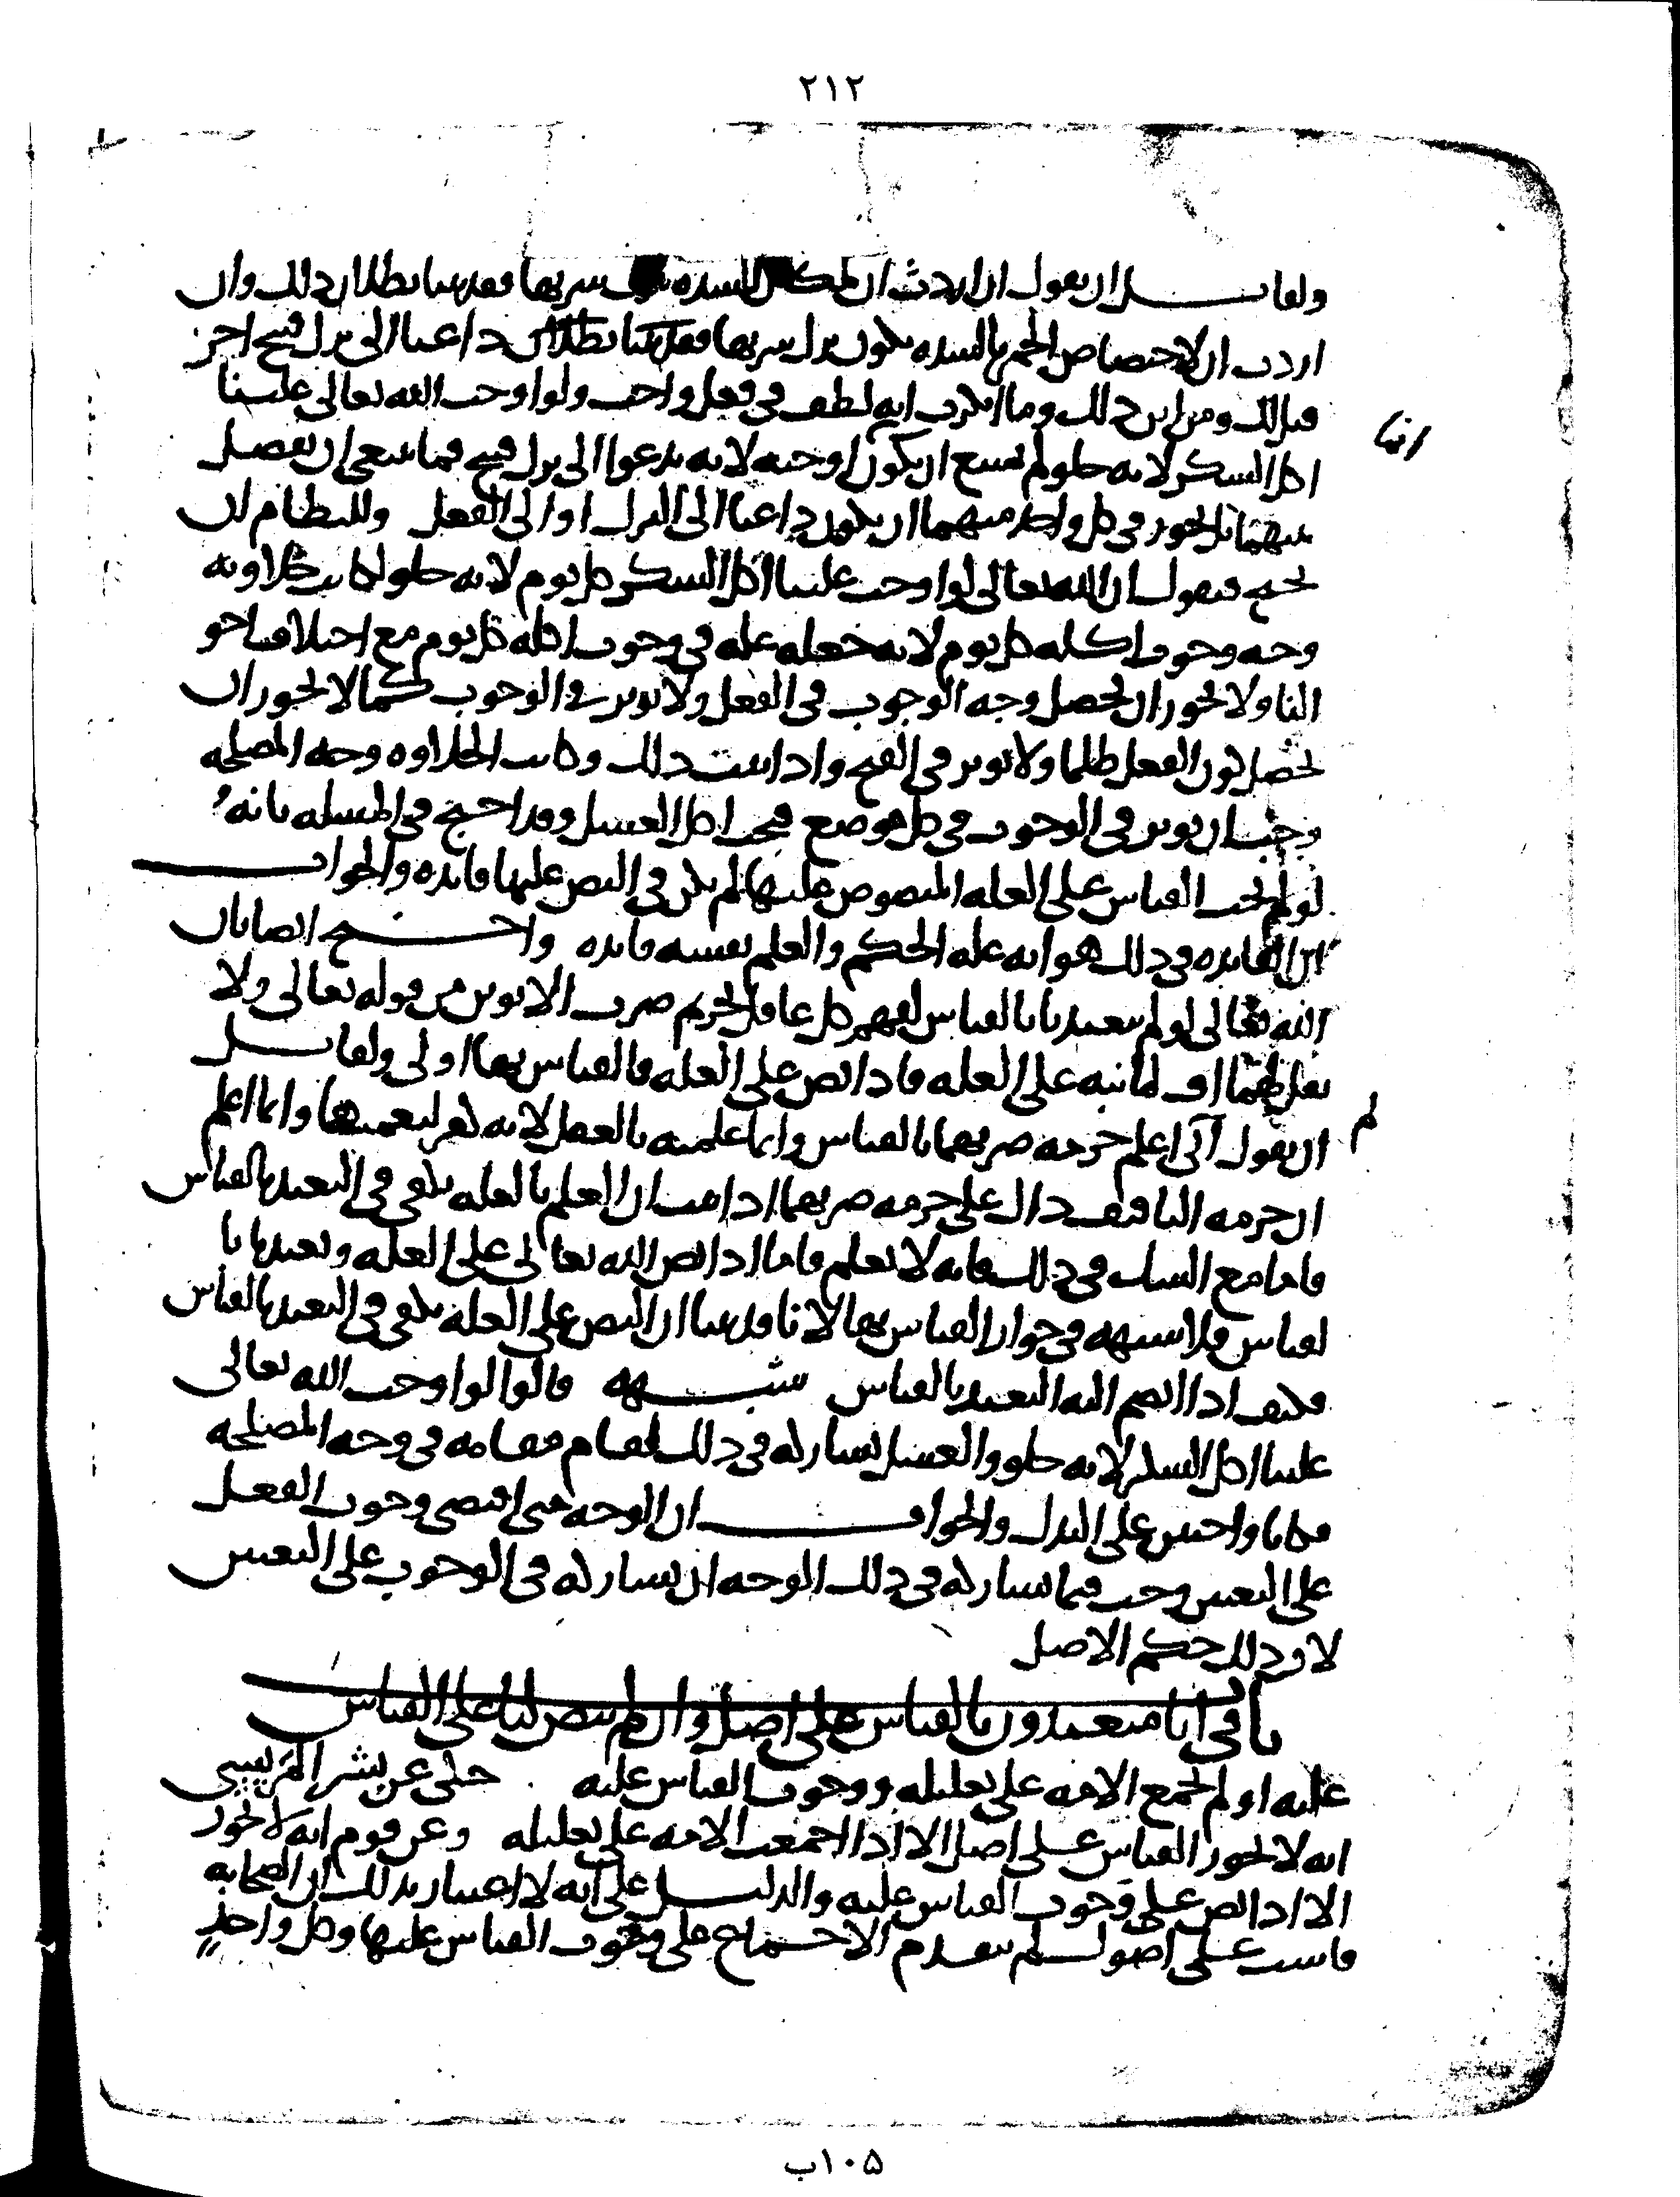 ٢١٢
ولقائل ان يقول ان اردت ان شربها فقد بينا بطلان ذلك وان
اردت ان لاختصاص الخمر بالشدة يكون ترك شربها داعيا الى ترك قبيح اخر
قيل لك ومن اين ذلك وما انكرت انه لطف في فعل واجب ولو اوجب الله تعالى علينا
ايضا
اكل السكر لانه حلو لم يمتنع ان يكون اوجبه لانه يدعوا الى ترك قبيح فما ينبغي ان يفصل
بينهما بل يجوز في كل واحد منهما ان يكون داعيا الى الترك او الى الفعل وللنظام ان
يحتج فيقول ان الله تعالى لو اوجب علينا اكل السكر كل يوم لانه حلو لكانت حلاوته
وجه وجوب اكله كل يوم لانه جعله علة في وجوب اكله كل يوم مع اختلاف احو
النا ولا يجوز ان يحصل وجه الوجوب في الفعل ولا يوثر في الوجوب كما لا يجوز ان
يحصل كون الفعل ظلما ولا يوثر في القبح واذا ثبت ذلك وكانت الحلاوة وجه المصلحة
وجب ان يوثر في الوجوب في كل موضع فيجب اكل العسل وقد احتج في المسلة بانه
لو لم يجب القياس على العلة المنصوص عليها لم يكن في النص عليها فايدة والجواب
ان الفايدة في ذلك هو انه علة الحكم والعلم بنفسه فايدة واحتج ايضا بان
الله تعالى لو لم يتعبدنا بالقياس لفهم كل عاقل تحريم ضرب الابوين من قوله تعالى ولا
تقل لهما اف لما نبه على العلة فاذا نص على العلة فالقياس بها اولى ولقائل
لم
ان يقول اني اعلم حرمة ضربهما بالقياس وانما علمته بالعقل لانه كفر لنعمتهما وانما اعلم
ان حرمة التافيف دال على حرمة ضربهما اذا ثبت ان العلم بالعلة يكفي في التعبد بالقياس
فاما مع الشك في ذلك فانه لا يعلم فاما اذا نص الله تعالى على العلة وتعبدنا با
لقياس فلا شبهة في جواز القياس بها لانا قد بينا ان النص على العلة يكفي في التعبد بالقياس
فكيف اذا انضم اليه التعبد بالقياس شبهة قالوا لو اوجب الله تعالى
علينا اكل السكر لانه حلو والعسل يشاركه في ذلك لقام مقامه في وجه المصلحة
فكانا واجبين على البدل والجواب ان الوجه متى اقتضى وجوب الفعل
على التعيين وجب فيما يشاركه في ذلك الوجه ان يشاركه في الوجوب على التعيين
لان ذلك حكم الاصل
باب في انا متعبدون بالقياس على اصل وان لم ينص لنا على القياس
عليه او لم تجمع الامة على تعليله ووجوب القياس عليه حكي عن بشر المريسي
انه لا يجوز القياس على اصل الا اذا اجمعت الامة على تعليله وعن قوم انه لا يجوز
الا اذا نص على وجوب القياس عليه والدليل على انه لا اعتبار بذلك ان الصحابة
قاست على اصول لم يتقدم الاجماع على وجوب القياس عليها وكل واحد
١٠۵ب